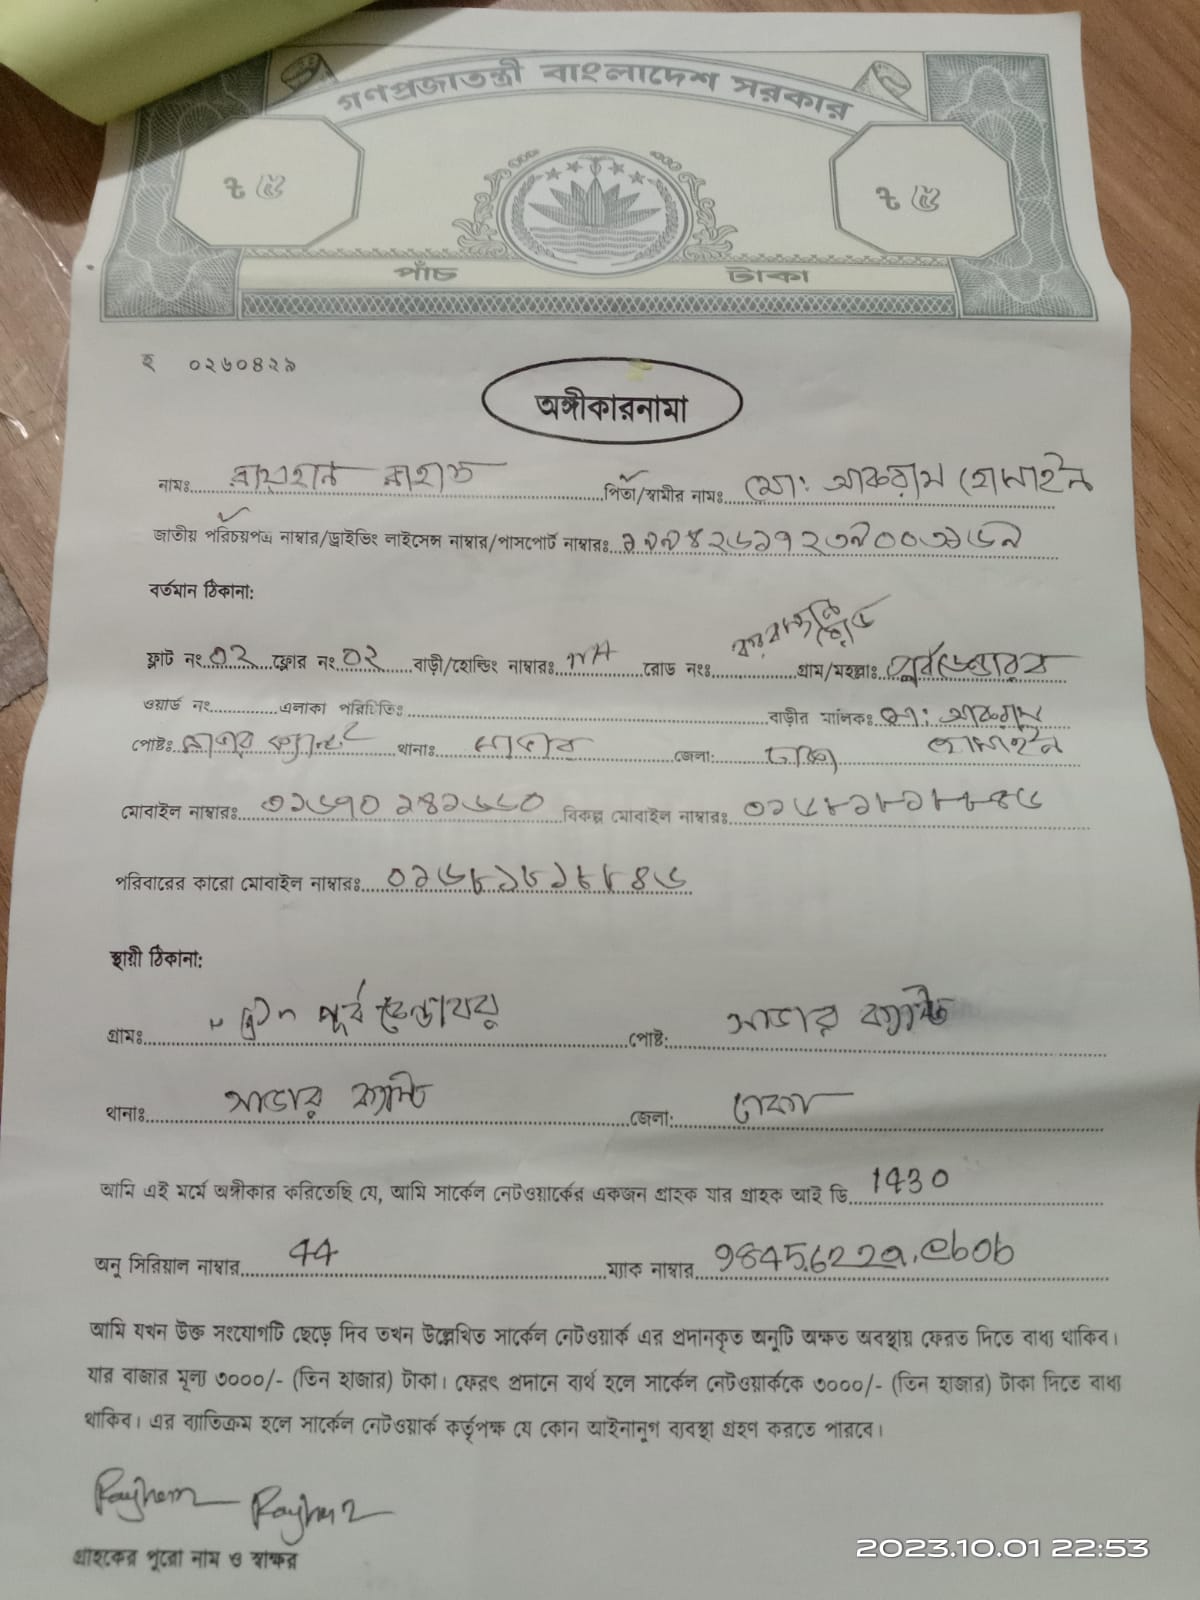 গণপ্রজাতন্ত্রী বাংলাদেশ সরকার
৳ ৫ ৳ ৫
পাঁচ টাকা
হ ০২৬০৪২৯
অঙ্গীকারনামা
নামঃ রায়হান রাহাত পিতা/স্বামীর নামঃ মো: আকরাম হোসাইন
জাতীয় পরিচয়পত্র নাম্বার/ড্রাইভিং লাইসেন্স নাম্বার/পাসপোর্ট নাম্বারঃ
বর্তমান ঠিকানা:
ফ্লাট নং ০২ ফ্লোর নং ০২ বাড়ী/হোল্ডিং নাম্বারঃ NA রোড নংঃ রোড গ্রাম/মহল্লাঃ পূর্ব
ওয়ার্ড নং এলাকা পরিচিতিঃ বাড়ীর মালিকঃ মো: আকরাম
পোষ্টঃ সাভার ক্যান্ট থানাঃ সাভার জেলা: ঢাকা হোসাইন
মোবাইল নাম্বারঃ ০১৬৭০২৪১৬৬০ বিকল্প মোবাইল নাম্বারঃ ০১৬৮১৮১৮৮৪৬
পরিবারের কারো মোবাইল নাম্বারঃ ০১৬৮১৮১৮৮৪৬
স্থায়ী ঠিকানা:
গ্রামঃ পূর্ব পোষ্ট: সাভার ক্যান্ট
থানাঃ সাভার ক্যান্ট জেলা: ঢাকা
আমি এই মর্মে অঙ্গীকার করিতেছি যে, আমি সার্কেল নেটওয়ার্কের একজন গ্রাহক যার গ্রাহক আই ডি 1430
অনু সিরিয়াল নাম্বার 44 ম্যাক নাম্বার 9845.622a.eb0b
আমি যখন উক্ত সংযোগটি ছেড়ে দিব তখন উল্লেখিত সার্কেল নেটওয়ার্ক এর প্রদানকৃত অনুটি অক্ষত অবস্থায় ফেরত দিতে বাধ্য থাকিব।
যার বাজার মূল্য ৩০০০/- (তিন হাজার) টাকা। ফেরৎ প্রদানে ব্যর্থ হলে সার্কেল নেটওয়ার্ককে ৩০০০/- (তিন হাজার) টাকা দিতে বাধ্য
থাকিব। এর ব্যাতিক্রম হলে সার্কেল নেটওয়ার্ক কর্তৃপক্ষ যে কোন আইনানুগ ব্যবস্থা গ্রহণ করতে পারবে।
Rayhan Rayhan
গ্রাহকের পুরো নাম ও স্বাক্ষর
2023.10.01 22:53